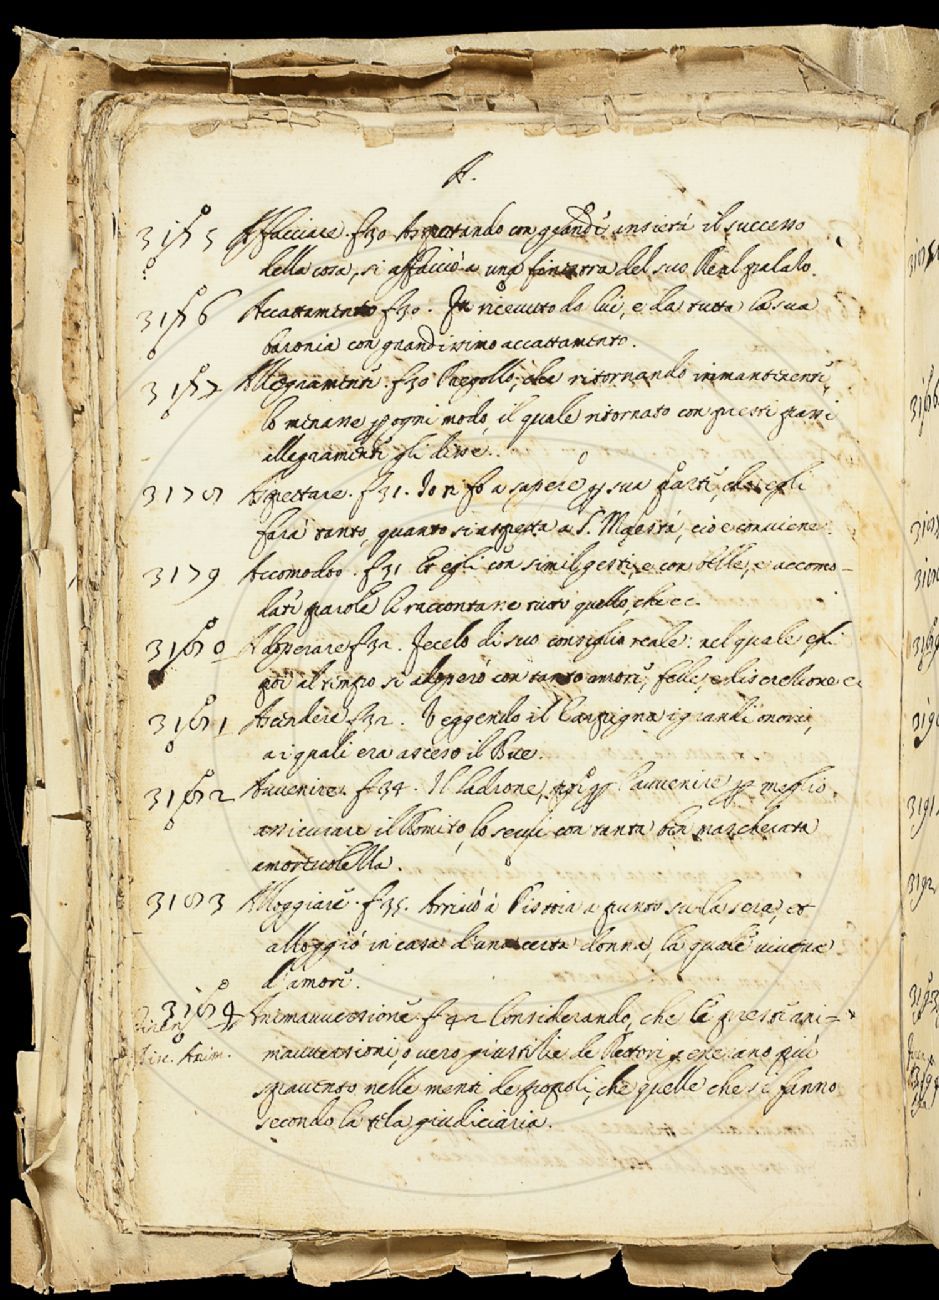 A.
Affacciare. f. 30 Aspettando con grandi ansietà il successo
della cosa, si affacciò a una finestra del suo Real palalo.
Accattamento f. 30. Fu ricevuto da lui, e da tutta la sua
baronia con grandissimo accattamento.
Allegramenti. f. 30 Pregollo, che ritornando inmantinenti,
lo menasse p ogni modo, il quale ritornato con questi passi
allegramenti gli disse.
3178 Aspettare. f. 31. Io vi fo a sapere p sua parti, che egli
farà tanto, quanto si aspetta a S. Maestà, ciò e conviene.
3179 Accomodoo. f. 31 Et egli con simil gesti, e con belle, e accomo-
dati parole li raccontare tutto quello, che ec.
3180 Adoperare f. 32. Fecelo di suo consiglio reale: nel quale egli
poi al tempo si adoperò con tanto amori, fede, e discretione ec
3181 Ascendere f. 32. Veggendo il Campigna i grandi onori,
a i quali era asceso il Bue.
3182 Avvenire. f. 34. Il ladrone, poi p l'avvenire p meglio
assicurare il Romito, lo scusi con tanta ben mascherata
amorevolella.
3183 Alloggiare. f. 35. Arrivò à Pistoia a punto su la sera, et
alloggiò in casa d'una certa donna, la quale viveva
d'amori.
3184 Animavversione f. 42 Considerando, che le presti ani-
mavversioni, o vero giustitie de Rettori, generano più
spavento nelle menti de popoli, che quelle che si fanno
secondo la tela giudiciaria.